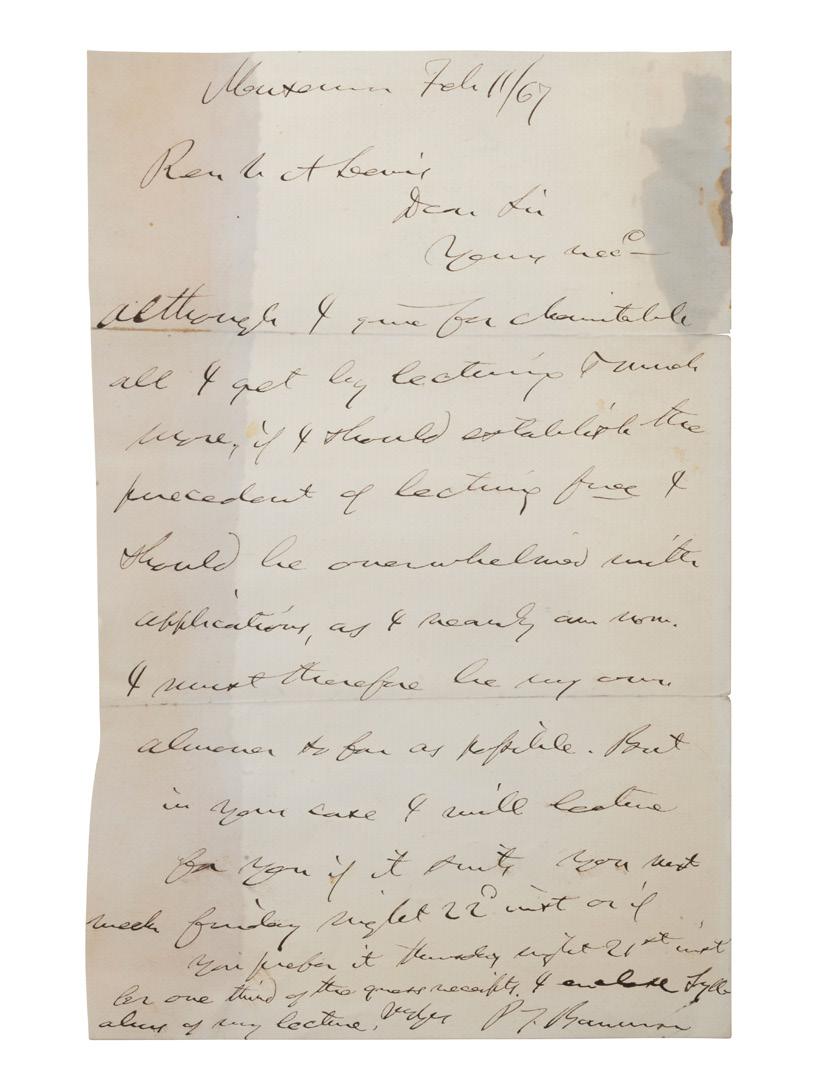 Museum Feb 11/67
Rev W A Lewis
Dear Sir
Yours recd—
although I give for charitable
all I get by lecturing & much
more, if I should establish the
precedent of lecturing free I
should be overwhelmed with
applications, as I nearly am now.
I must therefore be my own
almoner so far as possible. But
in your case I will lecture
for you if it suits you next
week friday night 22d inst or if
you prefer it thursday night 21st inst
for one third of the gross receipts. I enclose Sylla
abus of my lecture. P. T. Barnum